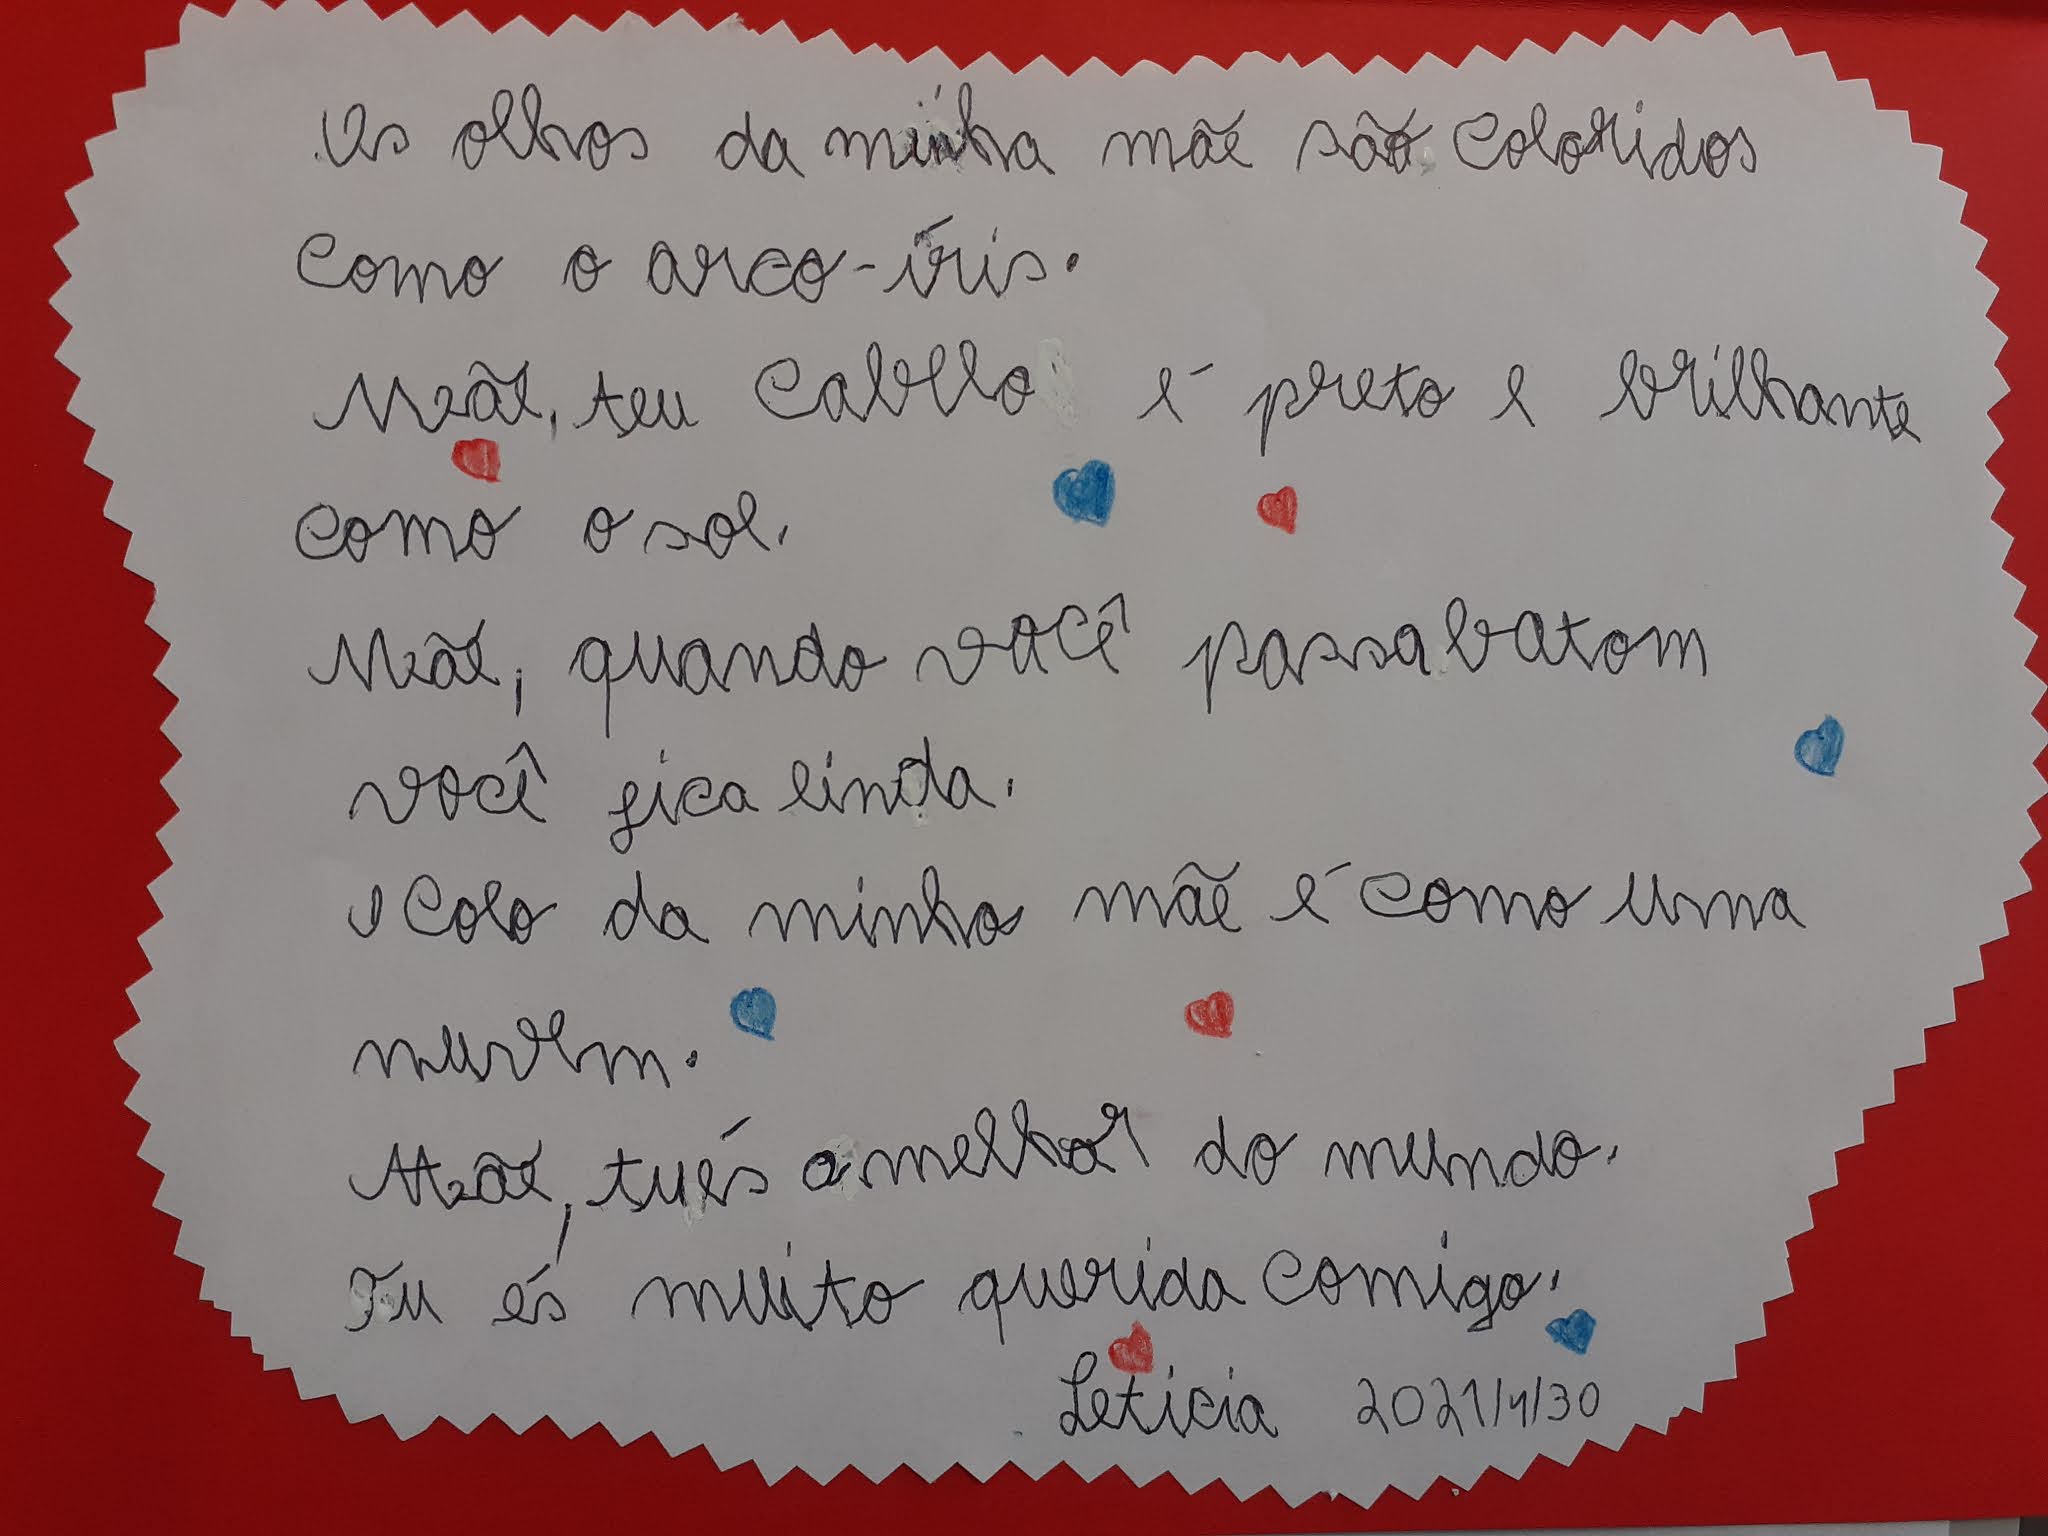 Os olhos da minha mãe são coloridos
como o arco-íris.
Mãe, teu cabelo é preto e brilhante
como o sol.
Mãe, quando você passa batom
você fica linda.
O colo da minha mãe é como uma
nuvem.
Mãe, tu és a melhor do mundo.
Tu és muito querida comigo.
Leticia 2021/4/30